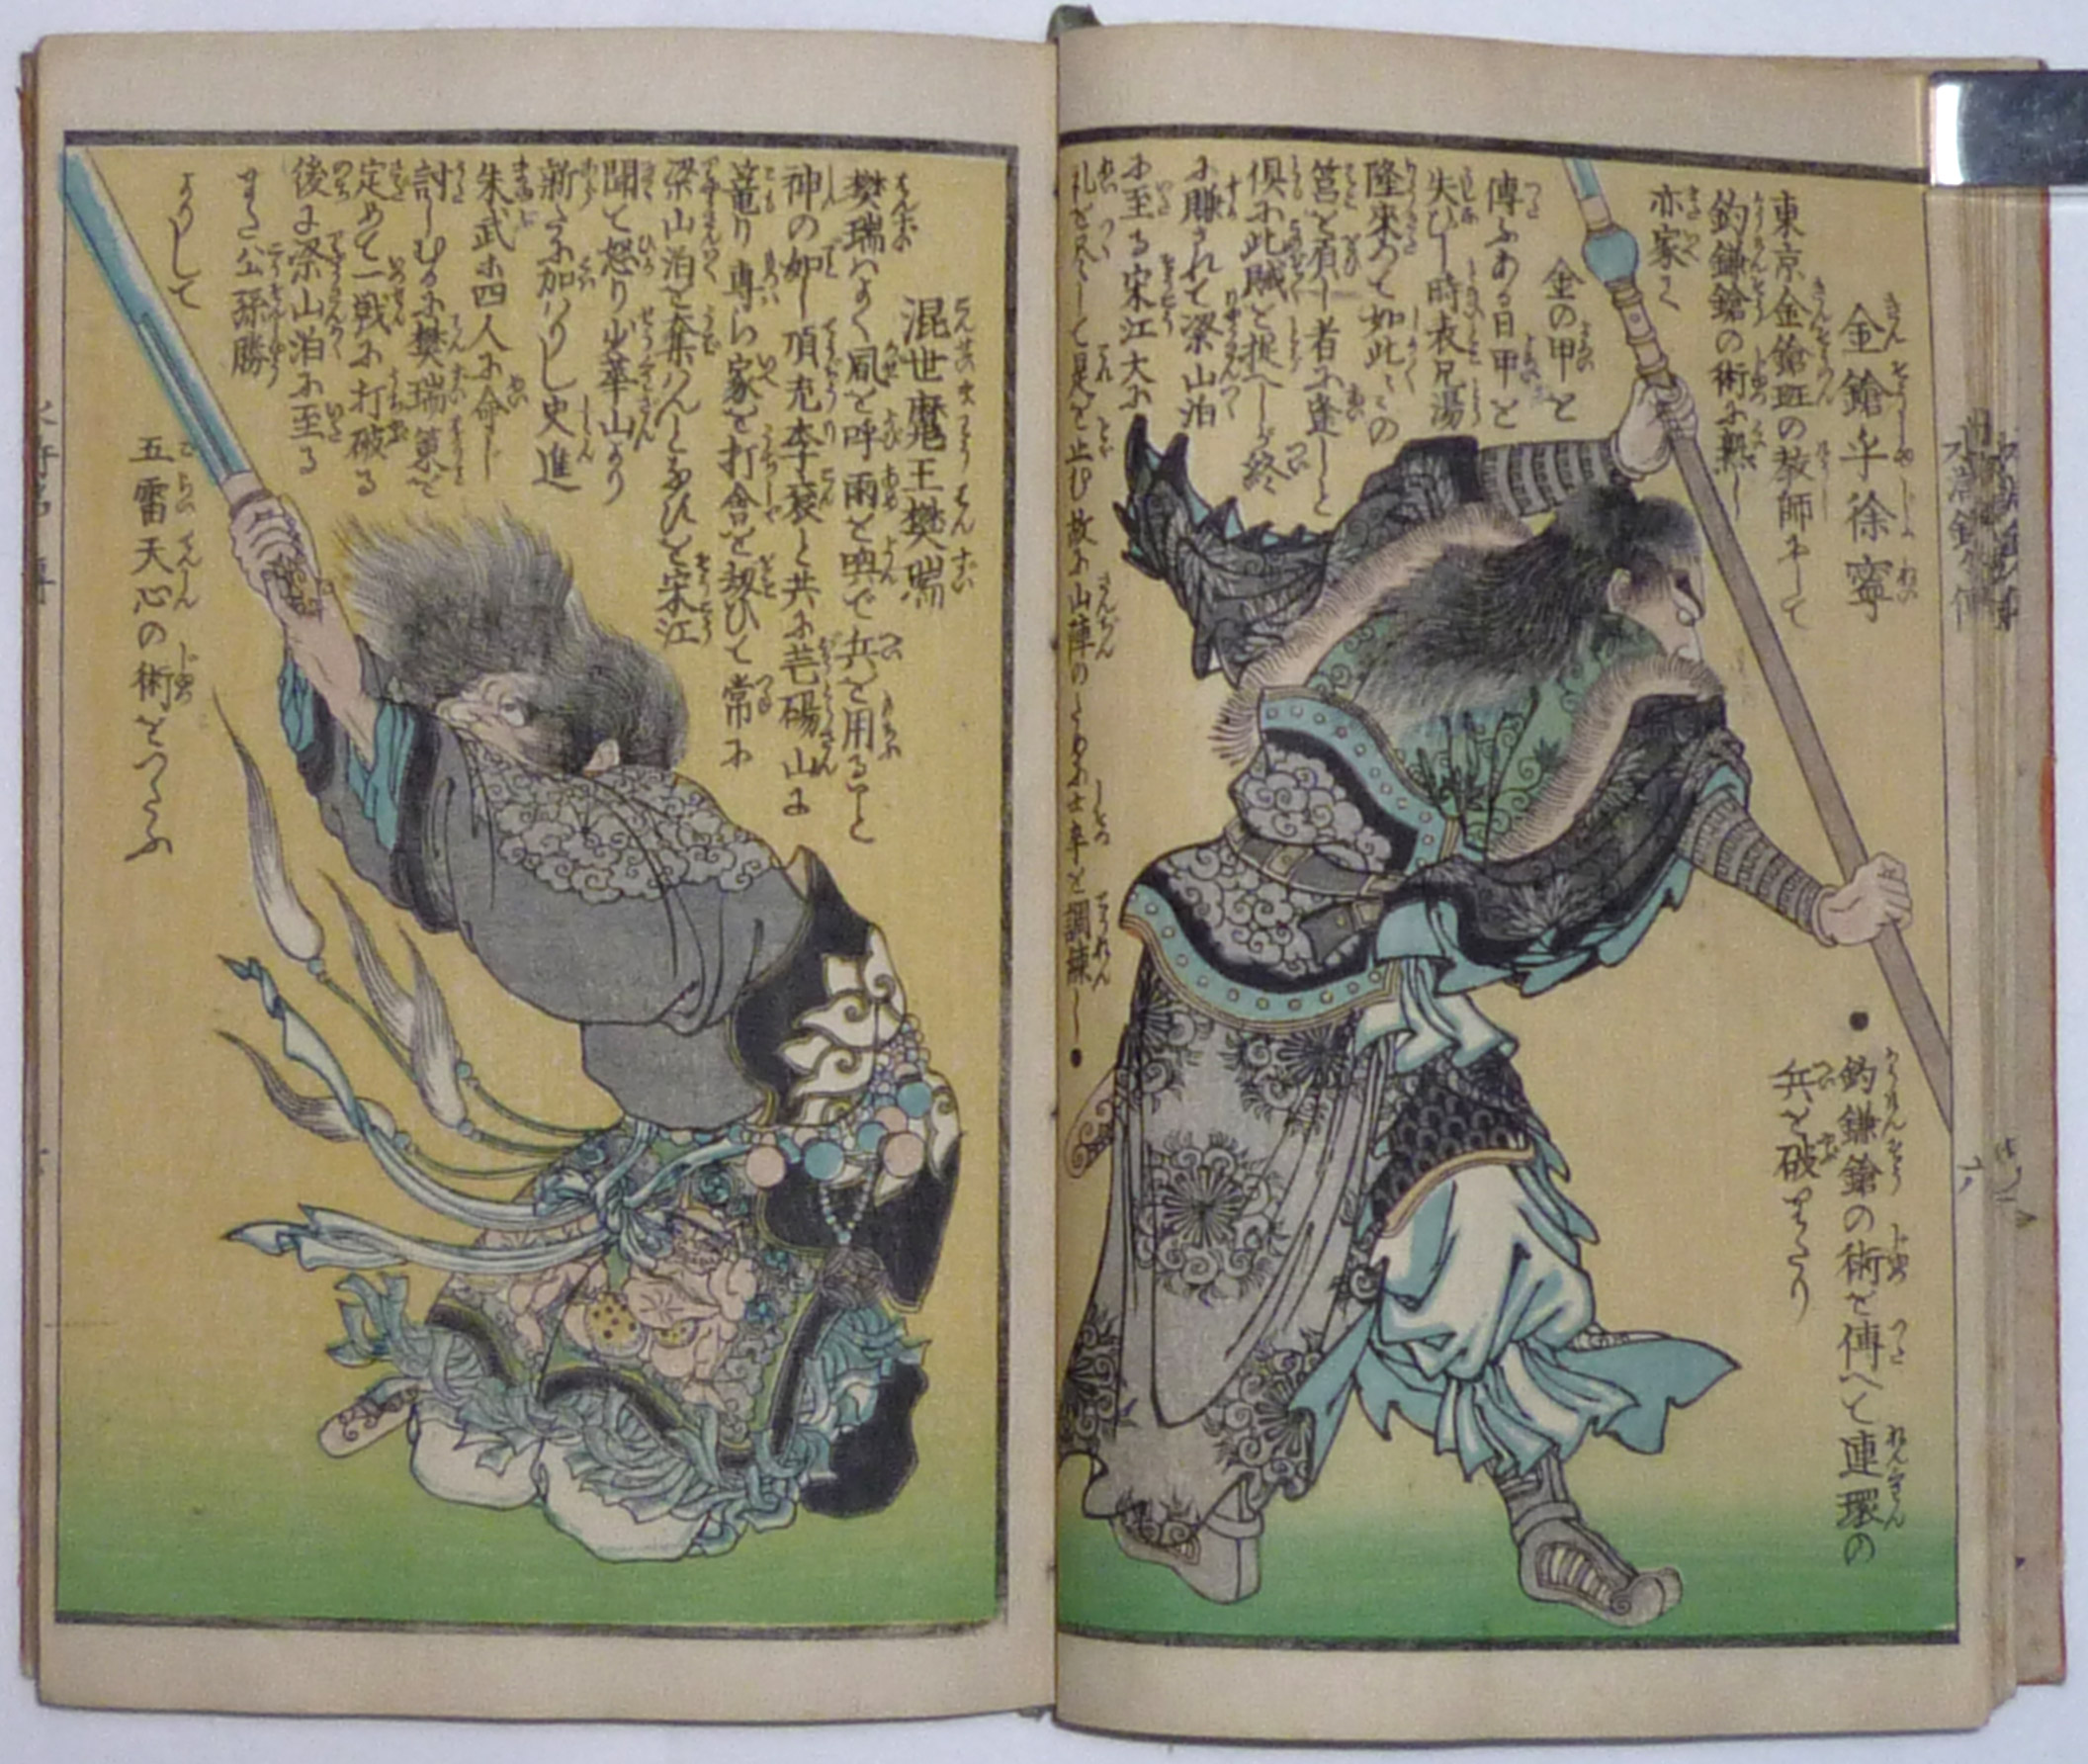 金鎗手徐寧
東京金鎗班の教師にして
鈎鎌鎗の術に熟し
亦家に
金の甲を
傳ふある日甲を
失ひし時表兄湯
隆來つて如此々の
筥を負し者に逢しと
倶に此賊を捉へしが終
に賺されて梁山泊
に至る宋江大に
礼を尽して是を止む故に山陣のために士卒を調練し●
●鈎鎌鎗の術を傳へて連環の
兵を破りたり
混世魔王樊瑞
樊瑞はよく風を呼雨を喚で兵を用ること
神の如し項充李袞と共に芒碭山に
篭り専ら家を打舎を刼ひて常に
梁山泊を奪はんといひしを宋江
聞て怒り少華山より
新たに加はりし史進
朱武等四人に命じ
討しむるに樊瑞策を
定めて一戦に打破る
後に梁山泊に至る
また公孫勝
よりして
五雷天心の術をつたふ